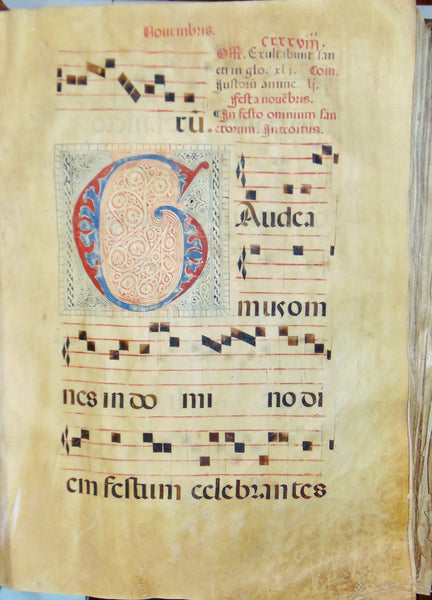 Nouembris.
ccxxxviij.
Off. Exultabunt san
cti in glo. xlj. Com.
Justorū anime. lj.
Festa nouēbris.
In festo omnium san
ctorum. Introitus.
rū.
GAudea
mus om
nes in do mi no di
em festum celebrantes